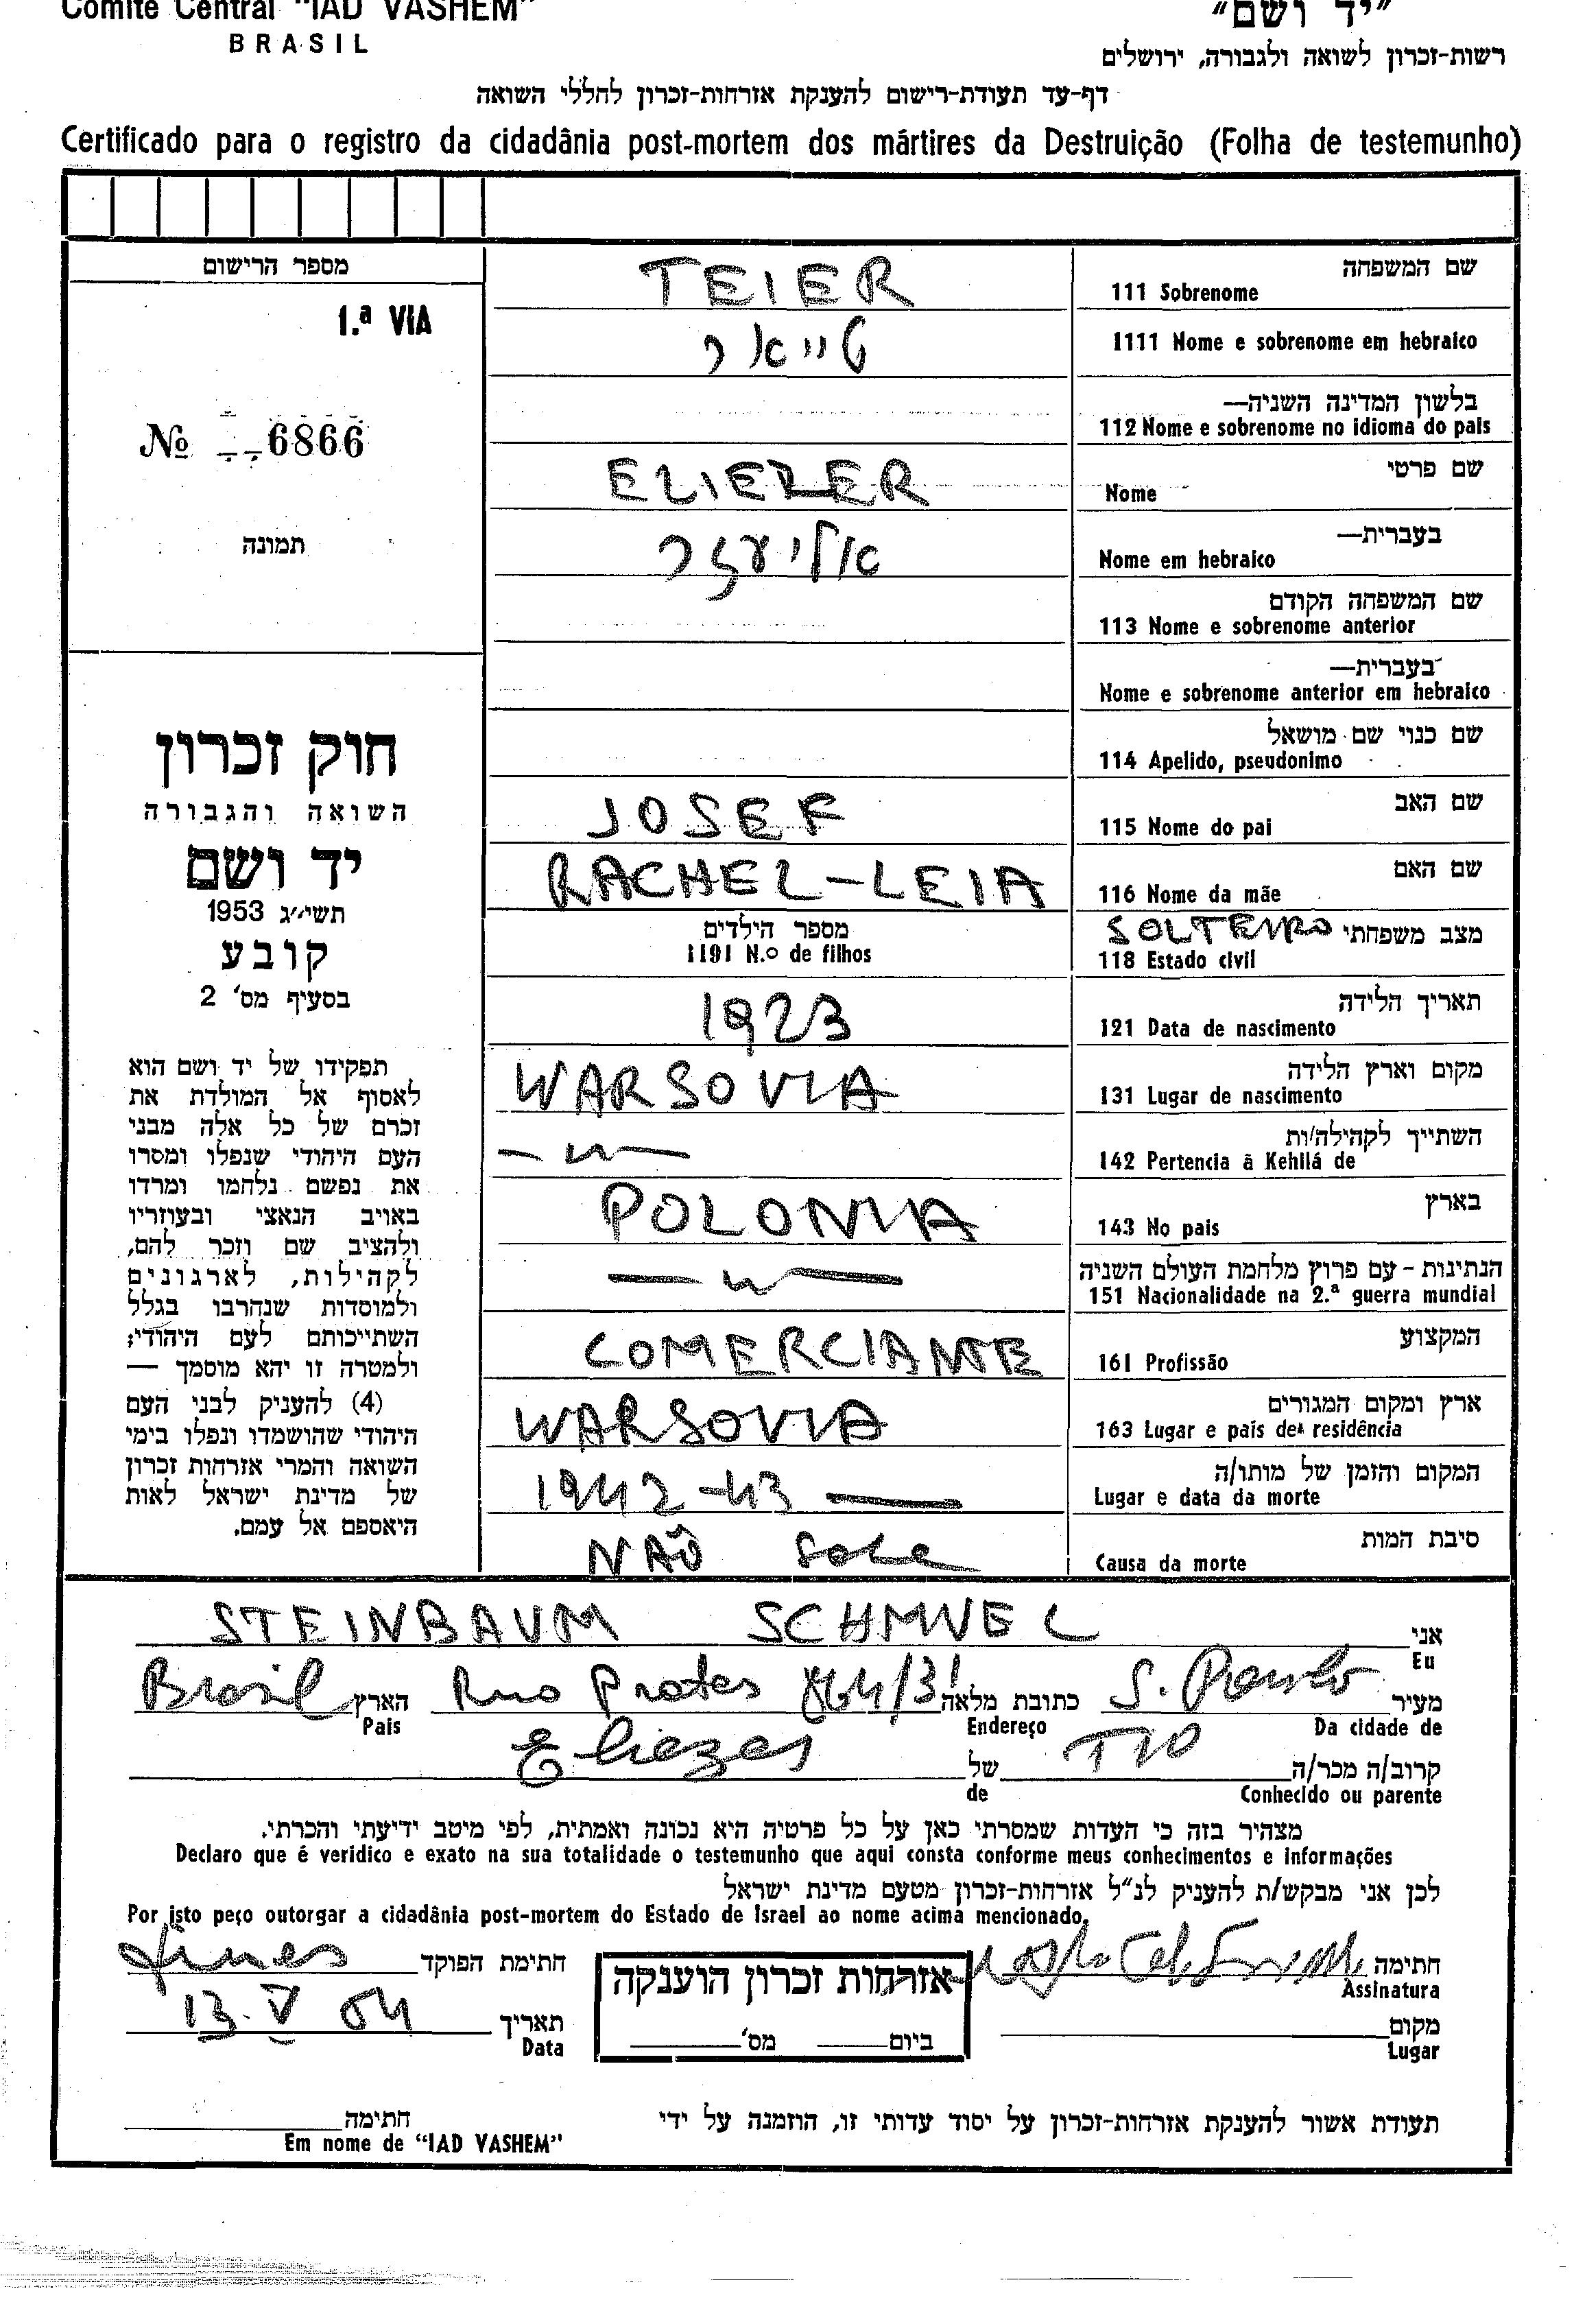 Comitê Central "IAD VASHEM"
BRASIL
"יד ושם"
רשות-זכרון לשואה ולגבורה, ירושלים
דף-עד תעודת-רישום להענקת אזרחות-זכרון לחללי השואה
Certificado para o registro da cidadânia post-mortem dos mártires da Destruição (Folha de testemunho)
מספר הרישום
1.ª VIA
№ 6866
תמונה
חוק זכרון
השואה והגבורה
יד ושם
תשי״ג 1953
קובע
בסעיף מס׳ 2
תפקידו של יד ושם הוא
לאסוף אל המולדת את
זכרם של כל אלה מבני
העם היהודי שנפלו ומסרו
את נפשם נלחמו ומרדו
באויב הנאצי ובעוזריו
ולהציב שם וזכר להם,
לקהילות, לארגונים
ולמוסדות שנהרבו בגלל
השתייכותם לעם היהודי;
ולמטרה זו יהא מוסמך —
(4) להעניק לבני העם
היהודי שהושמדו ונפלו בימי
השואה והמרי אזרחות זכרון
של מדינת ישראל לאות
היאספם אל עמם.
שם המשפחה
111 Sobrenome TEIER
1111 Nome e sobrenome em hebraico טייאר
בלשון המדינה השניה—
112 Nome e sobrenome no idioma do pais
שם פרטי
Nome ELIEZER
בעברית—
Nome em hebraico אליעזר
שם המשפחה הקודם
113 Nome e sobrenome anterior
בעברית—
Nome e sobrenome anterior em hebraico
שם כנוי שם מושאל
114 Apelido, pseudonimo
שם האב
115 Nome do pai JOSEF
שם האם
116 Nome da mãe RACHEL-LEIA
מצב משפחתי SOLTEIRO
118 Estado civil
מספר הילדים
1191 N.º de filhos
תאריך הלידה
121 Data de nascimento 1923
מקום וארץ הלידה
131 Lugar de nascimento WARSOVIA
השתייך לקהילה/ות
142 Pertencia à Kehilá de —〃—
בארץ
143 No pais POLONIA
הנתינות - עם פרוץ מלחמת העולם השניה
151 Nacionalidade na 2.ª guerra mundial —〃—
המקצוע
161 Profissão COMERCIANTE
ארץ ומקום המגורים
163 Lugar e pais de residência WARSOVIA
המקום והזמן של מותו/ה
Lugar e data da morte 1942-43 —
סיבת המות
Causa da morte NAÕ
אני STEINBAUM SCHMUEL
Eu
מעיר S. Paulo כתובת מלאה Rua Prates הארץ Brasil
Da cidade de Endereço Pais
קרוב/ה מכר/ה TIO של Eliezer
Conhecido ou parente de
מצהיר בזה כי העדות שמסרתי כאן על כל פרטיה היא נכונה ואמתית, לפי מיטב ידיעתי והכרתי.
Declaro que é veridico e exato na sua totalidade o testemunho que aqui consta conforme meus conhecimentos e informações
לכן אני מבקש/ת להעניק לנ״ל אזרחות-זכרון מטעם מדינת ישראל
Por isto peço outorgar a cidadânia post-mortem do Estado de Israel ao nome acima mencionado.
חתימה
Assinatura
אזרחות זכרון הוענקה
ביום מס׳
חתימת הפוקד
מקום
Lugar
תאריך 13. V 54
Data
תעודת אשור להענקת אזרחות-זכרון על יסוד עדותי זו, הוזמנה על ידי
חתימה
Em nome de "IAD VASHEM"